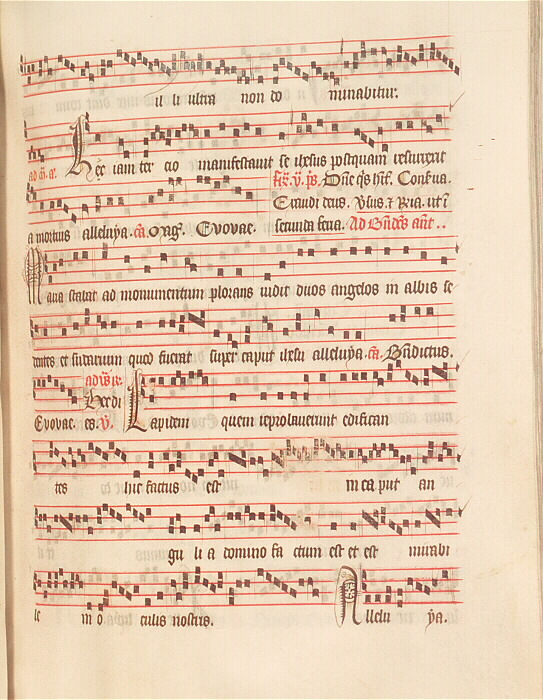 il li ultra non do minabitur.
Hec iam ter cio manifestavit se ihesus postquam resurrexit
a mortuis alleluya. Evovae.
Exaudi deus.
secunda feria.
Maria stabat ad monumentum plorans vidit duos angelos in albis se
dentes et sudarium quod fuerat super caput ihesu alleluya. Bndictus.
Evovae. es. v. Lapidem quem reprobaverunt edifican
tes hic factus est in ca put an
gu li a domino fa ctum est et est mirabi
le in o culis nostris. Allelu ya.